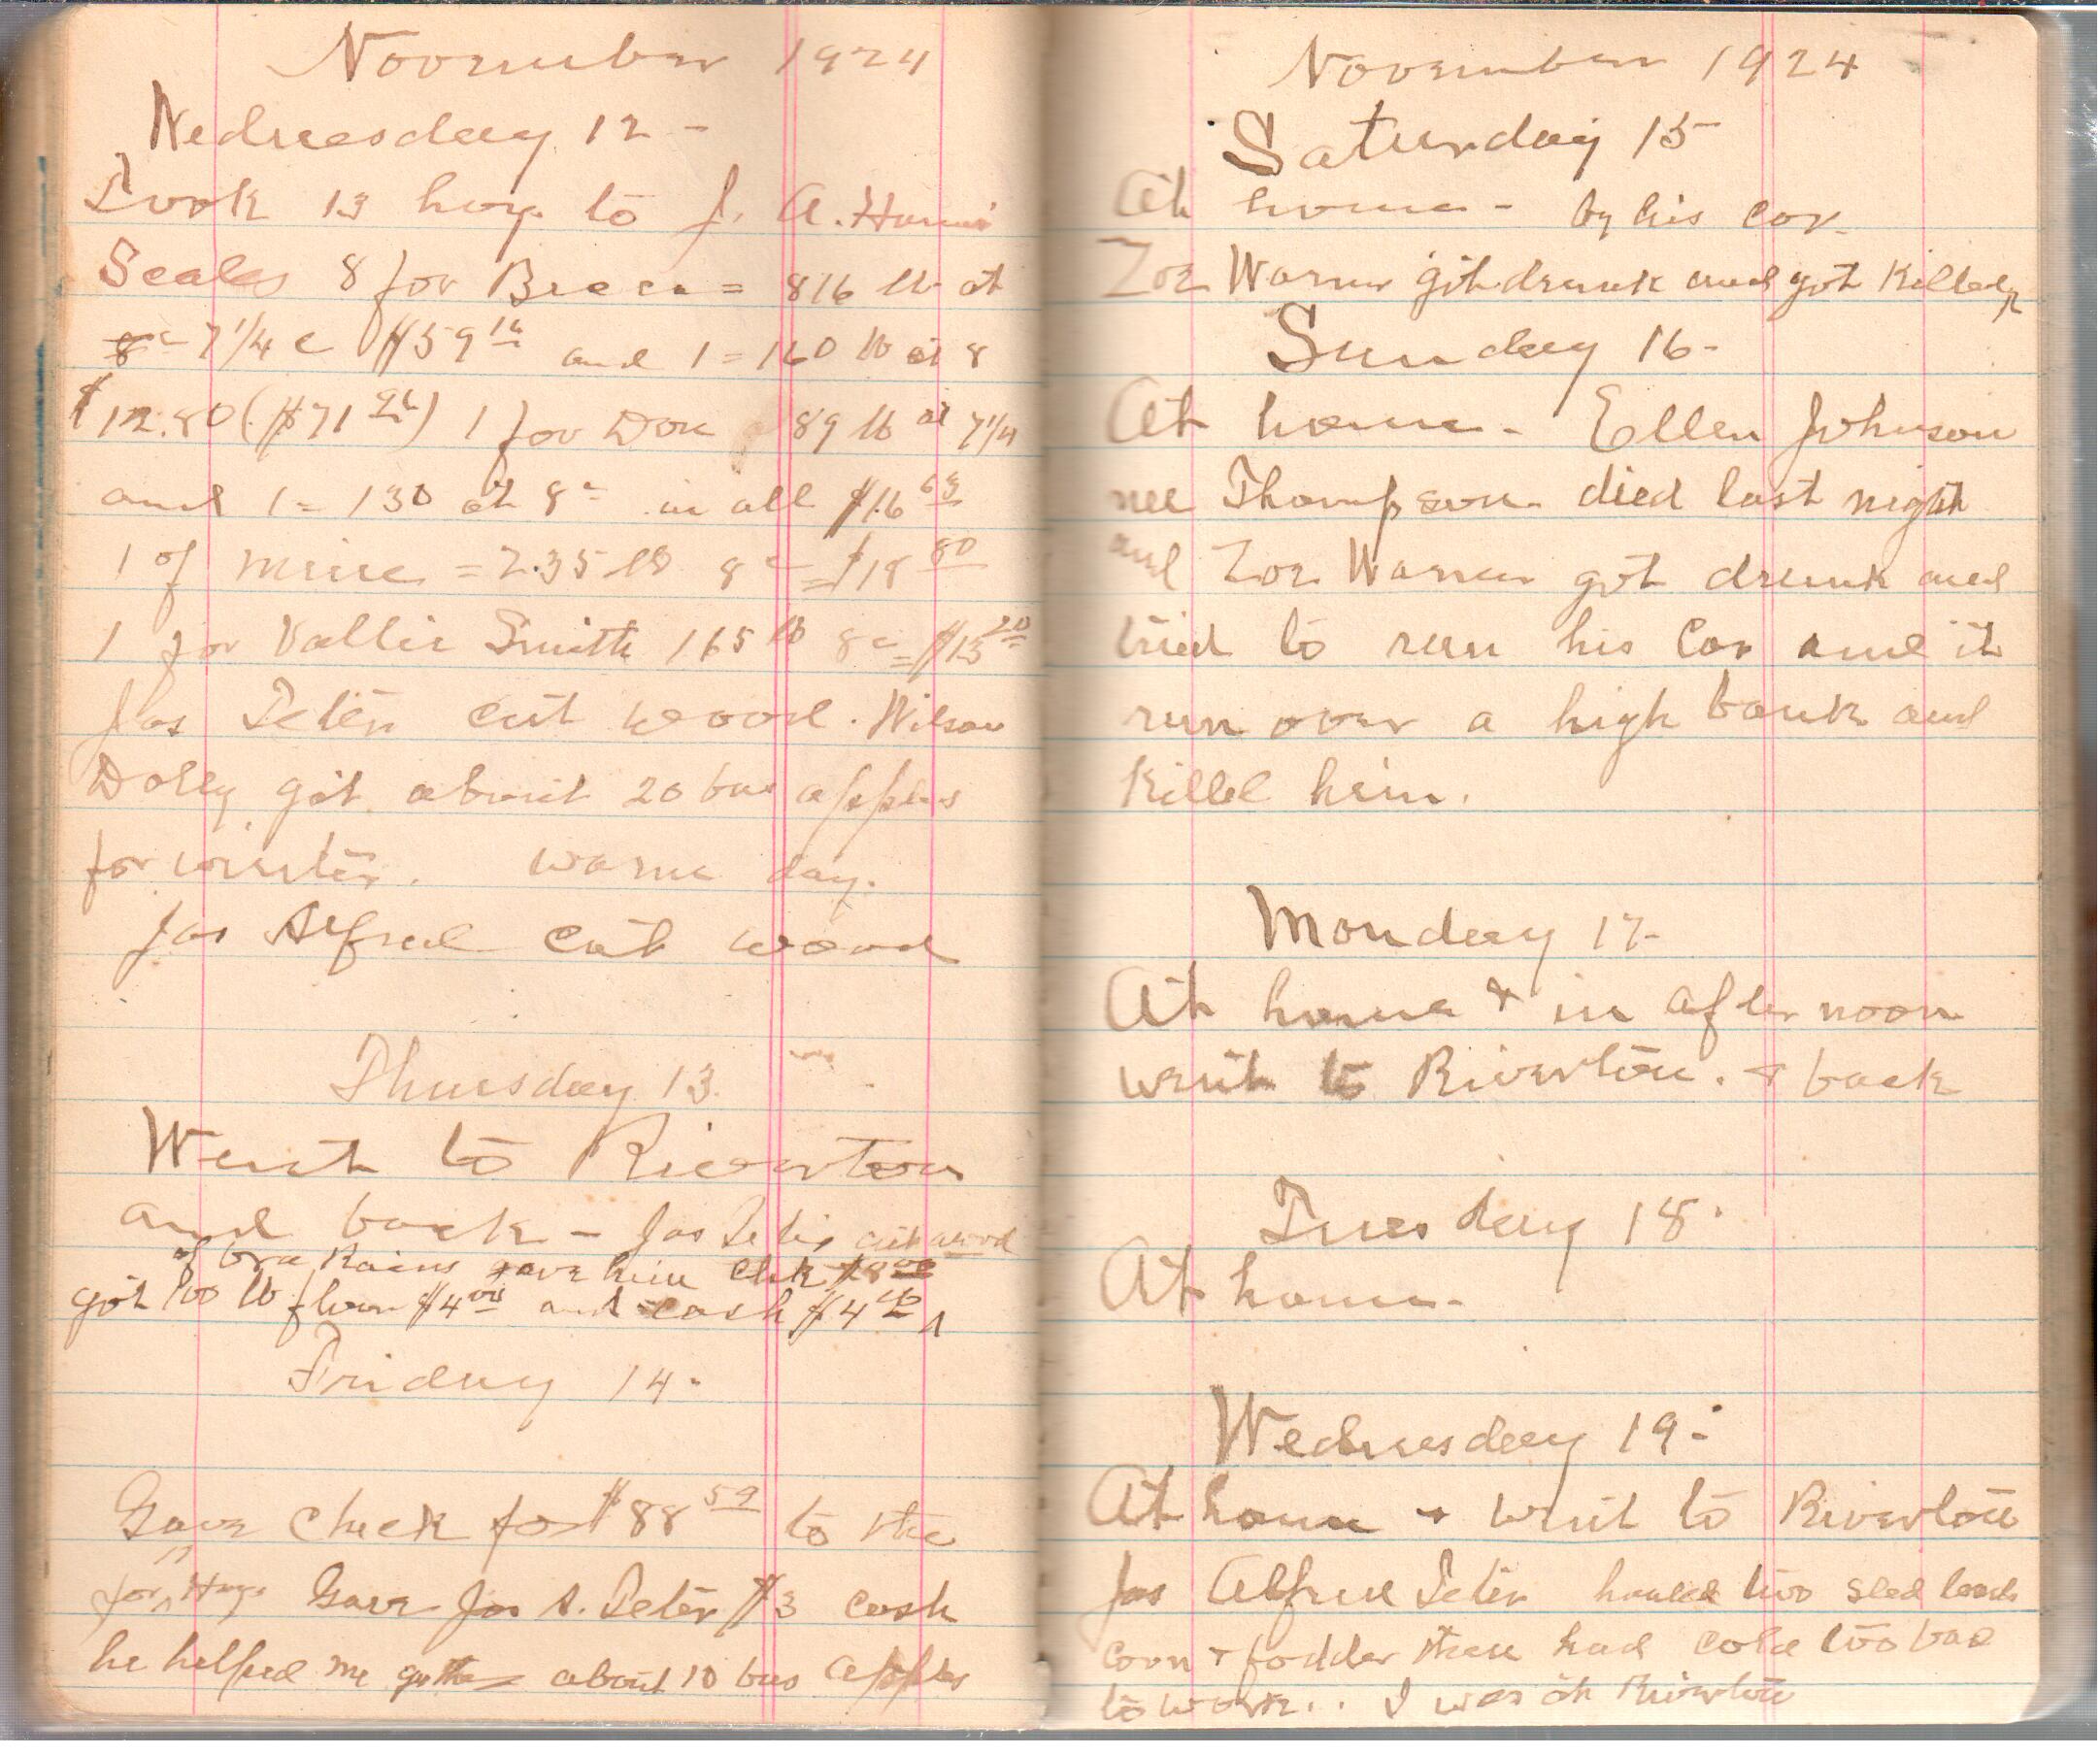 November 1924
Wednesday 12 -
Took 13 hogs to J. A. Harris
Scales 8 for = 816 lb at
8c 7 1/4 c $59 16 and 1 = 160 lb at 8
$12.80 ($71 96) 1 for Don 89 lb at 7 1/4
and 1 = 130 at 8c in all $16 63
1 of mine = 235 lb 8c = $18 80
1 for Vallie Smith 165 lb 8c = $13 20
Jas Teter cut wood. Wilson
Dolly got about 20 bus apples
for winter. warm day.
Jas Alfred cut wood
Thursday 13.
Went to Riverton
and back - Jas Teter cut wood
of Raines gave him Chk $8 00
got 100 lb flour $4 00 and cash $4 00
Friday 14 -
Gave check for $88 59 to the
for Hogs Gave Jas A. Teter $3 cash
he helped me gather about 10 bus apples
November 1924
Saturday 15 -
At home - by his car.
Zoe Warner got drunk and got Killed
Sunday 16 -
At home - Ellen Johnson
nee Thompson died last night
and Zoe Warner got drunk and
tried to run his Car and it
run over a high bank and
Killed him.
Monday 17 -
At home & in afternoon
went to Riverton. & back
Tuesday 18.
At home -
Wednesday 19 -
At home & went to Riverton
Jas Alfred Teter hauled two sled loads
corn & fodder then had cold too bad
to work.. I was at Riverton